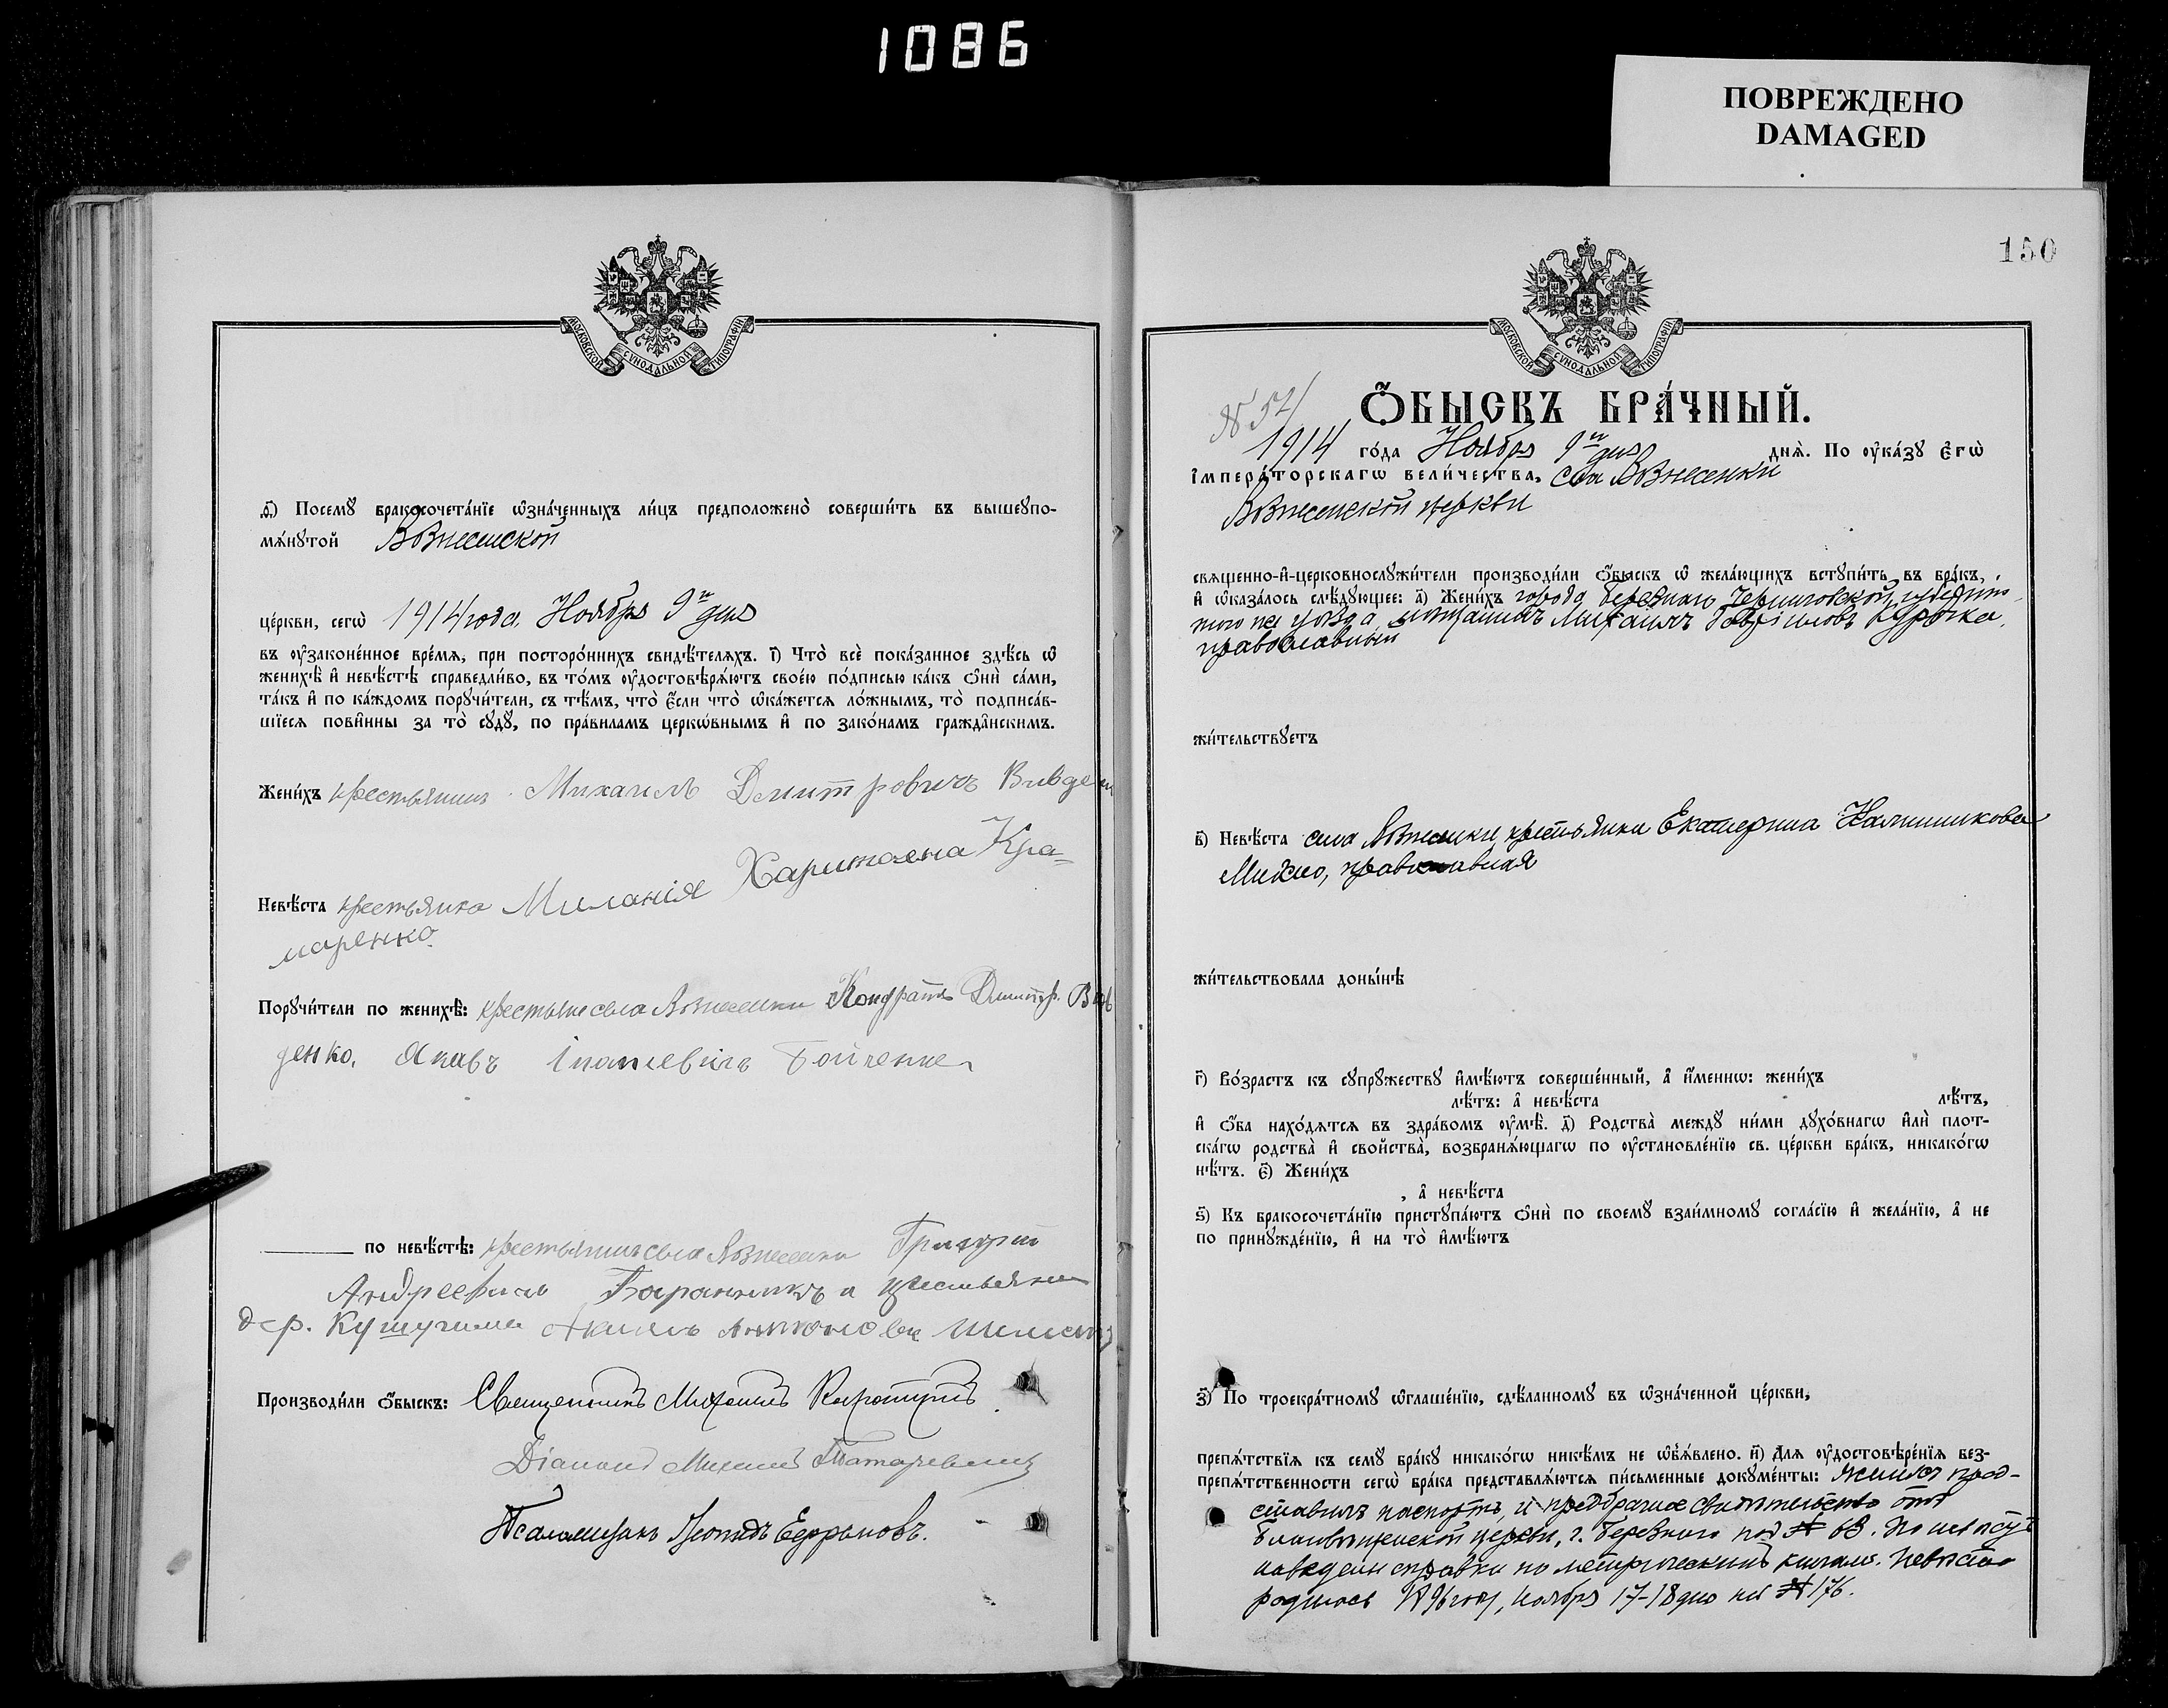 1086
ПОВРЕЖДЕНО
DAMAGED
МОСКОВСКОЙ СѴНОДАЛЬНОЙ ТИПОГРАФІИ
ѳ҃) Посемꙋ бракосочета́нїе ѡ҆зна́ченныхъ ли́цъ предположено̀ соверши́ть въ вышеꙋпо-
мѧ́нꙋтой Вознесенской
це́ркви, сегѡ̀ 1914 года, Ноября 9го дня
въ оу҆законе́нное вре́мѧ, при посторо́ннихъ свидѣ́телѧхъ. і҃) Что̀ всѐ пока́занное здѣ́сь ѡ҆
женихѣ̀ и҆ невѣ́стѣ справедли́во, въ то́мъ оу҆достовѣрѧ́ютъ свое́ю по́дписью ка́къ ѻ҆нѝ са́ми,
та́къ и҆ по ка́ждомъ порꙋчи́тели, съ тѣ́мъ, что̀ є҆́сли что̀ ѡ҆ка́жетсѧ ло́жнымъ, то̀ подписа́в-
шїесѧ пови́нны за то̀ сꙋдꙋ̀, по пра́виламъ церкѡ́внымъ и҆ по зако́намъ гражда́нскимъ.
Жени́хъ крестьянинъ Михаилъ Дмитровичъ Вивден
Невѣ́ста крестьянка Миланія Харитоена Кра-
маренко.
Порꙋчи́тели по женихѣ̀: крестьяне села Вознесенки Кондратъ Дмитр. Вив
денко, Якавъ Ігнатевичъ Бойченко
по невѣ́стѣ: крестьянинъ села Вознесенки Григорий
Андреевичъ Бараникъ и крестьянин
дер. Кушугума Антонов
Производи́ли ѻ҆́быскъ: Священникъ Михаилъ
Діаконъ Михаилъ Татаревичъ
Псаломщикъ Леонидъ
150
МОСКОВСКОЙ СѴНОДАЛЬНОЙ ТИПОГРАФІИ
N 52
Ѻ҆́БЫСКЪ БРА́ЧНЫЙ.
1914 го́да Ноября 9го дня днѧ̀. По оу҆ка́зꙋ є҆гѡ̀
і҆мпера́торскагѡ вели́чества, села Вознесенки
Вознесенской церкви
свѧще́нно-и҆-церковнослꙋжи́тели производи́ли ѻ҆́быскъ ѡ҆ жела́ющихъ встꙋпи́ть въ бра́къ,
и҆ ѡ҆каза́лось слѣ́дꙋющее: а҃) Жени́хъ города Березнаго Черниговской губерніи
того же уѣзда, мѣщанинъ Михаилъ Гавріиловъ Курочка,
православный
жи́тельствꙋетъ
в҃) Невѣ́ста села Вознесенки крестьянка Екатерина Калинникова
Михно, православная
жи́тельствовала доны́нѣ
г҃) Во́зрастъ къ сꙋпрꙋ́жествꙋ и҆мѣ́ютъ соверше́нный, а҆ и҆́меннѡ: жени́хъ
лѣ́тъ: а҆ невѣ́ста лѣ́тъ,
и҆ ѻ҆́ба нахо́дѧтсѧ въ здра́вомъ оу҆мѣ̀. д҃) Родства̀ междꙋ̀ ни́ми дꙋхо́внагѡ и҆лѝ плот-
ска́гѡ родства̀ и҆ свойства̀, возбранѧ́ющагѡ по оу҆становле́нїю св. це́ркви бра́къ, никако́гѡ
нѣ́тъ. є҃) Жени́хъ
, а҆ невѣ́ста
ѕ҃) Къ бракосочета́нїю пристꙋпа́ютъ ѻ҆нѝ по своемꙋ̀ взаи́мномꙋ согла́сїю и҆ жела́нїю, а҆ не
по принꙋжде́нїю, и҆ на то̀ и҆мѣ́ютъ
з҃) По троекра́тномꙋ ѡ҆глаше́нїю, сдѣ́ланномꙋ въ ѡ҆зна́ченной це́ркви,
препѧ́тствїѧ къ семꙋ̀ бра́кꙋ никако́гѡ никѣ́мъ не ѡ҆б̾ѧ́влено. и҃) Длѧ оу҆достовѣре́нїѧ без-
препѧ́тственности сегѡ̀ бра́ка представлѧ́ютсѧ пи́сьменные докꙋме́нты: женихъ пред-
ставилъ паспортъ, и предбрачное свидѣтельство отъ
Благовѣщенской церкви, г. Березнаго под № 68.
наведены справки по метрическимъ книгамъ. Невѣста
родилась 1896 году, ноября 17-18 дня № 176.